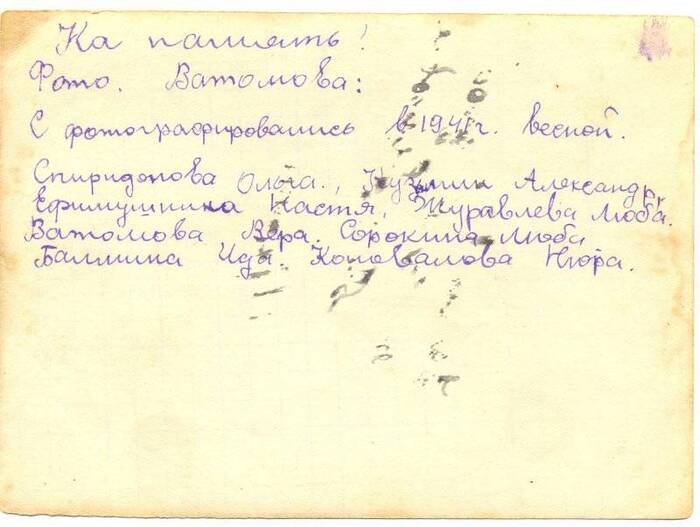 На память!
Фото. Ватомова:
С фотографировались в 1941г. весной.
Спиридонова Ольга., Кузьмин Александр,
Ефимушкина Настя, Журавлева Люба.
Ватомова Вера. Сорокина Люба
Балмина Ида. Коновалова Нюра.